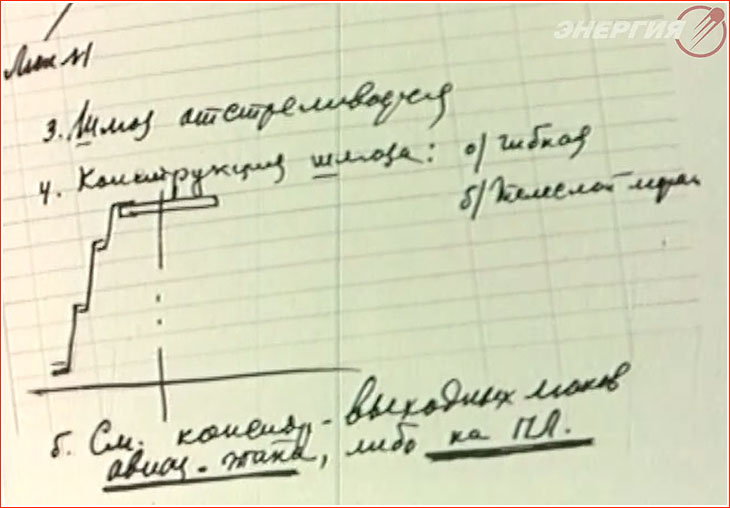 ЭНЕРГИЯ
Люк М
3. Шлюз отстреливается
4. Конструкция шлюза: а/ гибкая
б/ телескопическая
5. См. констр. выходных люков
авиац. типа, либо на ПЛ.